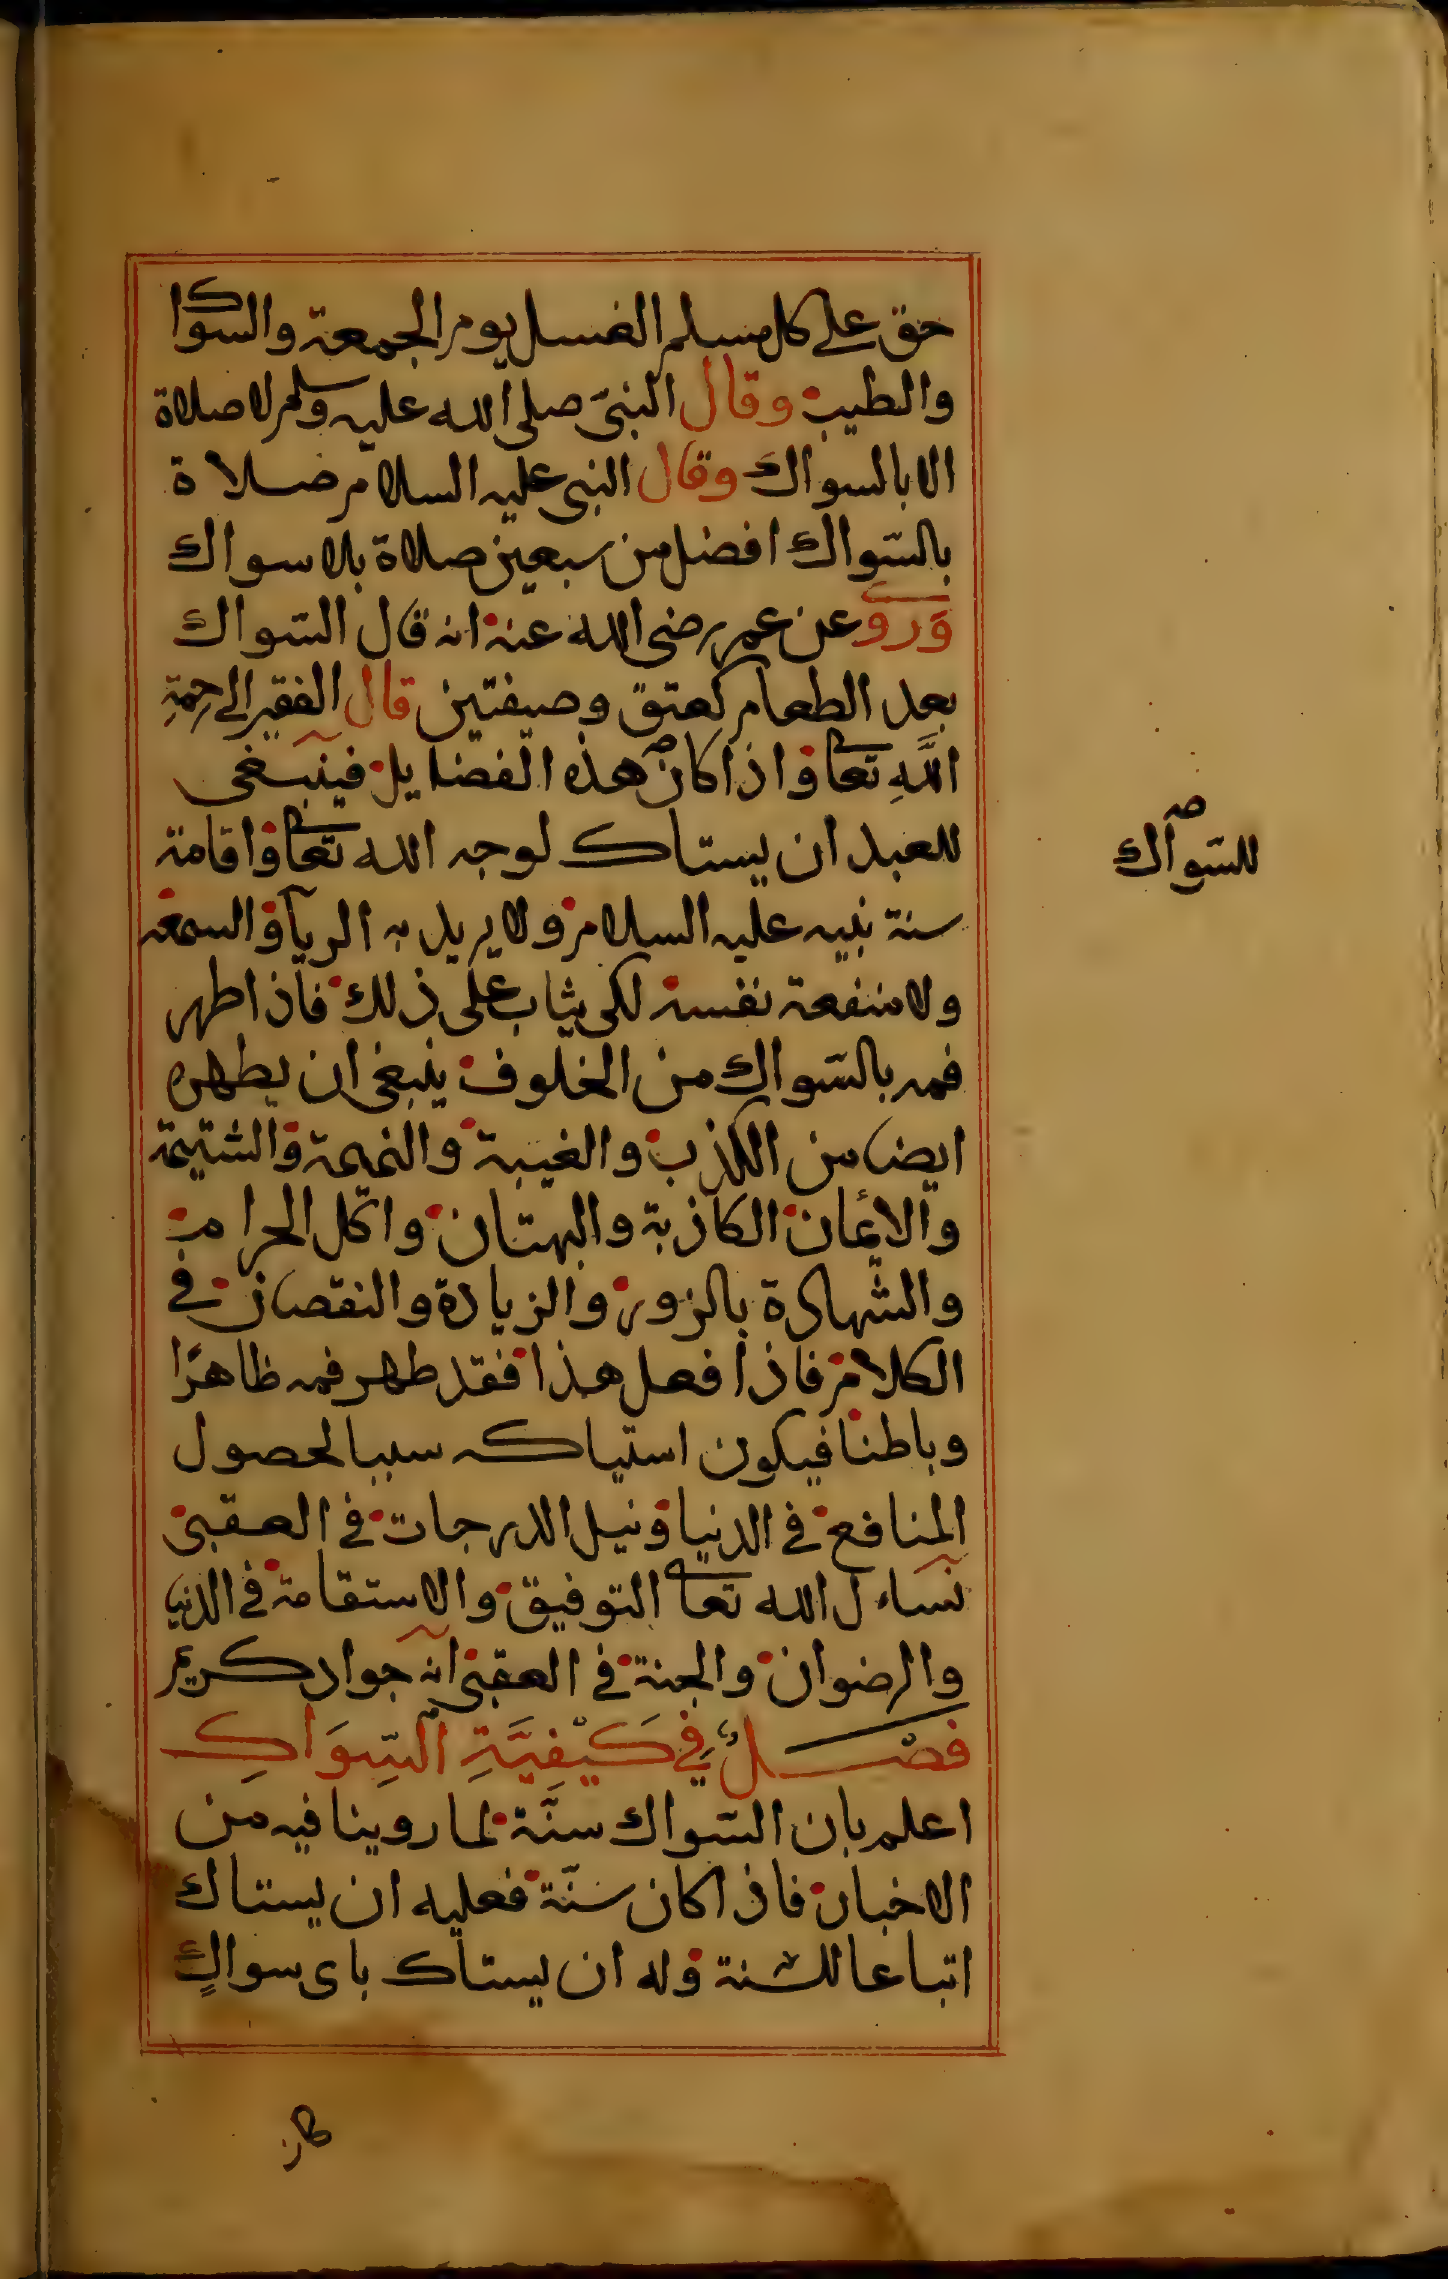 حق على كل مسلم الغسل يوم الجمعة والسواك
والطيب وقال النبىّ صلى الله عليه وسلم لا صلاة
الا بالسواك وقال النبى عليه السلام صلاة
بالسّواك افضل من سبعين صلاة بلا سواك
وَروى عن عمر رضى الله عنه انه قال السّواك
بعد الطعام كعتق وصيفتين قال الفقير الى رحمةِ
اللَّهِ تعالى واذا كان هذه الفضايل فينبغى
للسّواك
للعبد ان يستاك لوجه الله تعالى واقامة
سنة نبيه عليه السلام ولا يريد به الريآ والسمعه
ولا منفعة نفسه لكى يثاب على ذلك فاذا طهر
فمه بالسّواك من الخلوف ينبغى ان يطهره
ايضا من الكذب والغيبة والنميمة والشتيمة
والأيمان الكاذبة والبهتان واكل الحرام
والشهادة بالزور والزيادة والنقصان فى
الكلام فاذا فعل هذا فقد طهر فمه ظاهرًا
وباطنا فيكون استياكه سببا لحصول
المنافع فى الدنيا ونيل الدرجات فى العقبى
نساءل الله تعالى التوفيق والاستقامة فى الدنيا
والرضوان والجنة فى العقبى انه جواد كريم
فصْلٌ فِى كَيْفِيَّةِ السِّوَاكِ
اعلم بان السّواك سنَّة لما روينا فيه من
الاخبار فاذا كان سنّة فعليه ان يستاك
اتباعا للسّنة وله ان يستاك باى سواكٍ
كان